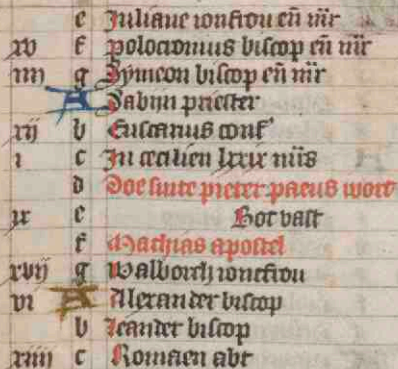 e Juliane ioncfrou en̄ mr̄
xv f polocronius biscop en̄ mr̄
iiij g Symeon biscop en̄ mr̄
A Sabijn priester
xij b Eucarius conf'
i c In cecilien lxxix mr̄s
d Doe sinte pieter paeus wort
ix e Hot vast
f Mathias apostel
xvij g Walborch ioncfrou
vi A Alexander biscop
b leander biscop
xiiij c Romaen abt